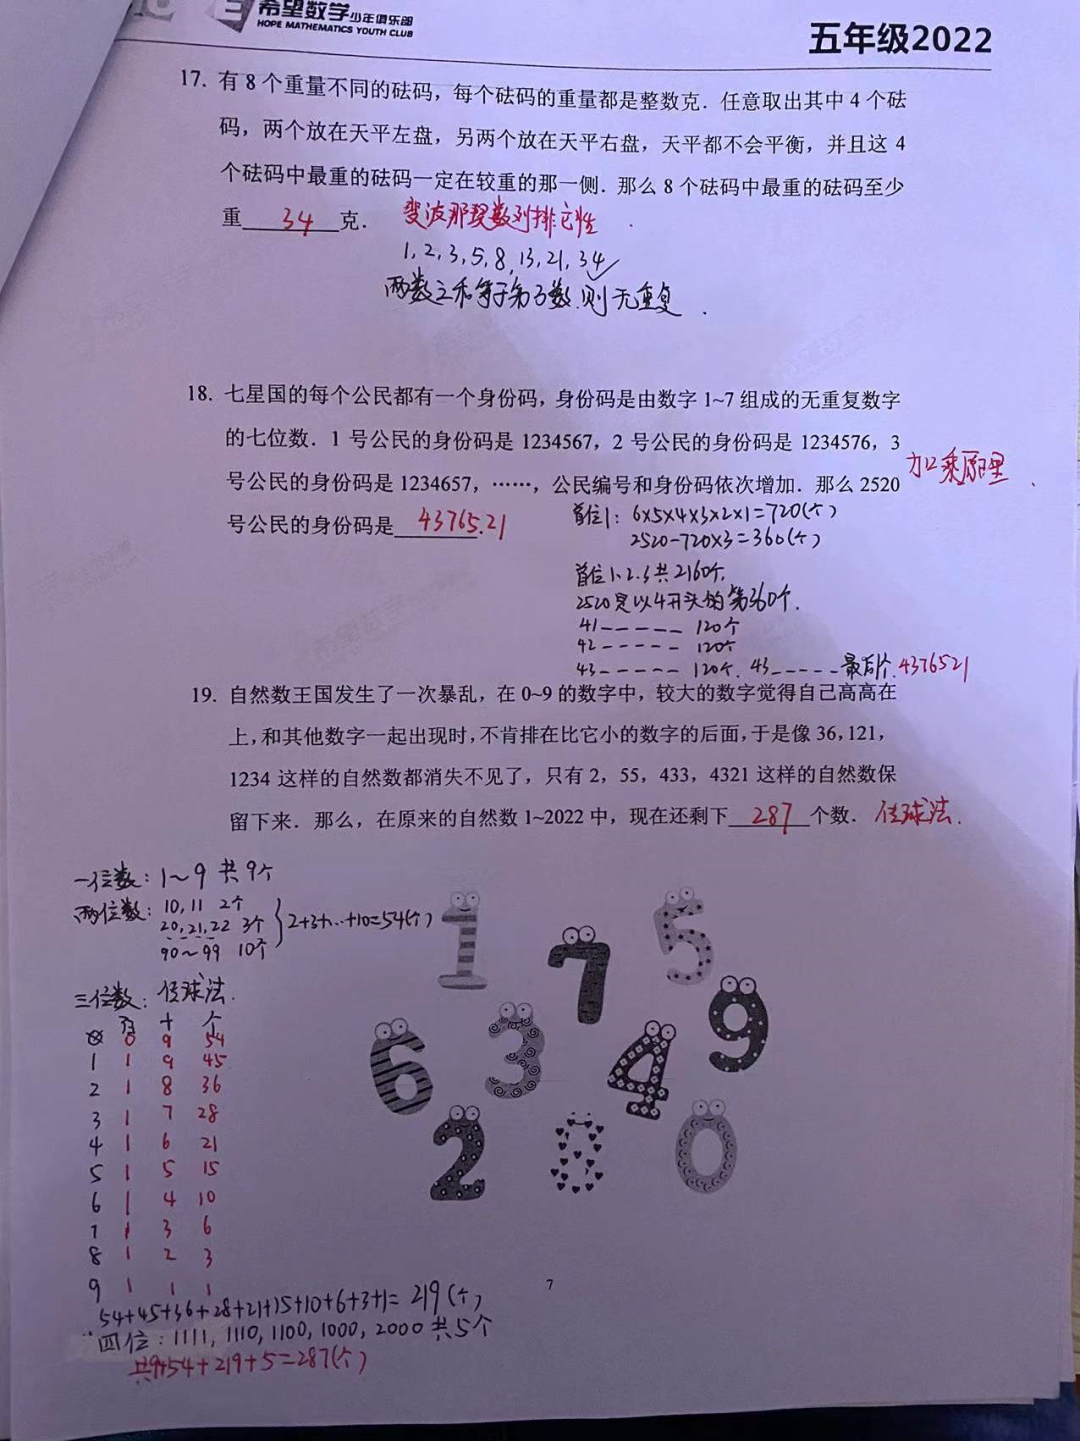 希望数学少年俱乐部
HOPE MATHEMATICS YOUTH CLUB
五年级2022
17. 有 8 个重量不同的砝码，每个砝码的重量都是整数克．任意取出其中 4 个砝
码，两个放在天平左盘，另两个放在天平右盘，天平都不会平衡，并且这 4
个砝码中最重的砝码一定在较重的那一侧．那么 8 个砝码中最重的砝码至少
重 34 克． 斐波那契数列排它性
1,2,3,5,8,13,21,34✓
两数之和等于第3数,则无重复．
18. 七星国的每个公民都有一个身份码，身份码是由数字 1~7 组成的无重复数字
的七位数．1 号公民的身份码是 1234567，2 号公民的身份码是 1234576，3
号公民的身份码是 1234657，……，公民编号和身份码依次增加．那么 2520
加乘原理
号公民的身份码是 4376521
首位1：6×5×4×3×2×1=720(个)
2520-720×3=360(个)
首位1、2、3共2160个.
2520是以4开头的第360个.
41----- 120个
42----- 120个
43----- 120个. 43-----最后个.4376521
19. 自然数王国发生了一次暴乱，在 0~9 的数字中，较大的数字觉得自己高高在
上，和其他数字一起出现时，不肯排在比它小的数字的后面，于是像 36，121，
1234 这样的自然数都消失不见了，只有 2，55，433，4321 这样的自然数保
留下来．那么，在原来的自然数 1~2022 中，现在还剩下 287 个数． 传球法.
一位数：1～9 共9个
两位数：10,11 2个
20,21,22 3个
90～99 10个
2+3+…+10=54(个)
三位数：传球法.
百 十 个
0 0 9 54
1 1 9 45
2 1 8 36
3 1 7 28
4 1 6 21
5 1 5 15
6 1 4 10
7 1 3 6
8 1 2 3
9 1 1 1
54+45+36+28+21+15+10+6+3+1= 219(个)
四位：1111, 1110, 1100, 1000, 2000 共5个
共9+54+219+5=287(个)
1 5
7
9
6 3 4
2 8 0
7